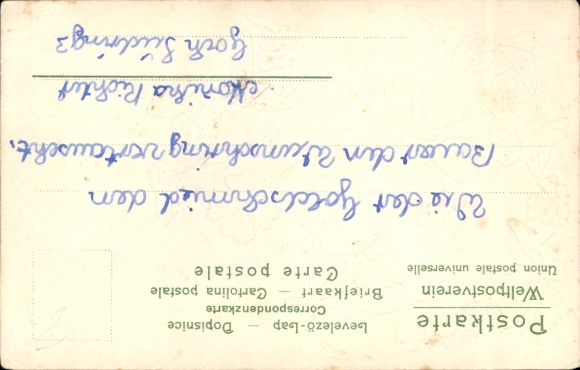 Postkarte
Weltpostverein
Union postale universelle
Levelező-Lap — Dopisnice
Correspondenzkarte
Briefkaart — Cartolina postale
Carte postale
Wie der Goldschmied dem
Bauer den Wunschring vertauscht.
Monika Richter
Goch Südring 3